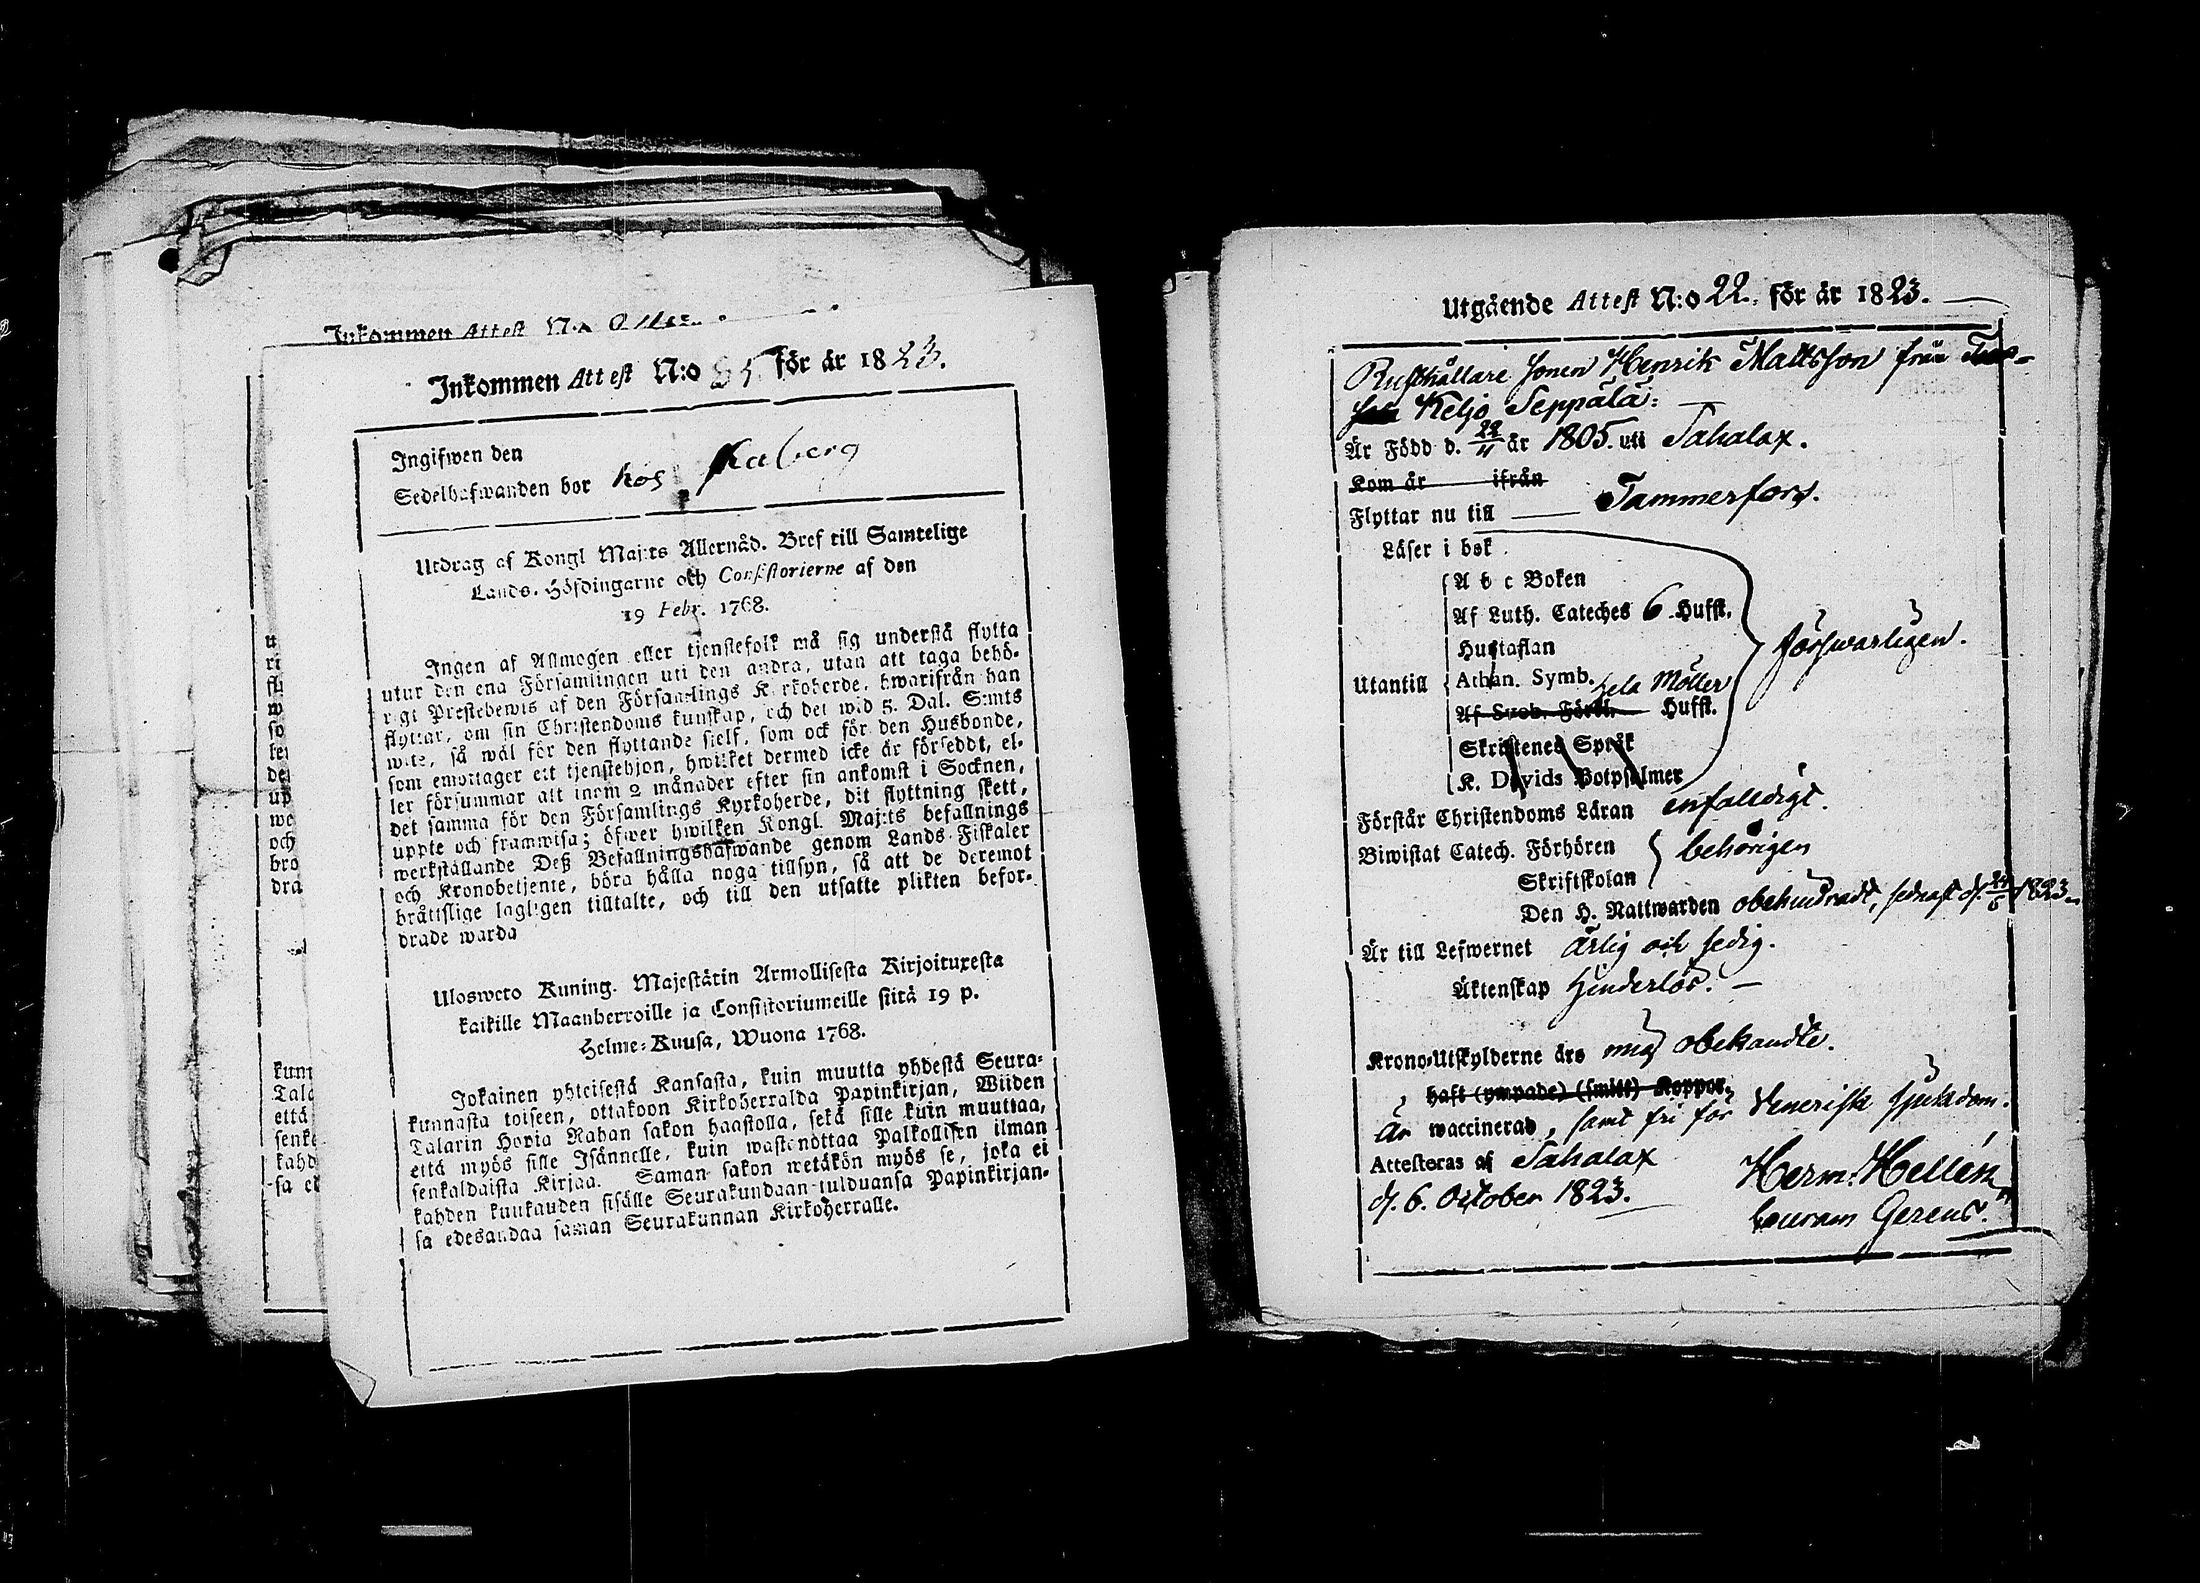 Inkommen Attest N:o
Inkommen Attest N:o 85 för år 1823.
Ingifwen den
Sedelhafwanden bor hos
Utdrag af Kongl Maj:ts Allernåd. Bref till Samtelige
Lands-Höfdingarne och Consistorierne af den
19 Febr. 1768.
Ingen af Allmogen eller tjenstefolk må sig understå flytta
utur den ena Församlingen uti den andra, utan att taga behö-
rigt Prestebewis af den Församlings Kyrkoherde, hwarifrån han
flyttar, om sin Christendoms kunskap, och det wid 5. Dal. S:mts
wite, så wäl för den flyttande sjelf, som ock för den Husbonde,
som emottager ett tjenstehjon, hwilket dermed icke är försedt, el-
ler försummar att inom 2 månader efter sin ankomst i Socknen,
det samma för den Församlings Kyrkoherde, dit flyttning skett,
uppte och framwisa; öfwer hwilken Kongl. Maj:ts befallnings
werkställande Deß Befallningshafwande genom Lands Fiskaler
och Kronobetjente, böra hålla noga tillsyn, så att de deremot
bråttslige lagligen tilltalte, och till den utsatte plikten befor-
drade warda
Ulosweto Kuning. Majestätin Armollisesta Kirjoituxesta
kaikille Maanherroille ja Consistoriumeille siitä 19 p.
Helme-Kuusa, Wuona 1768.
Jokainen yhteisestä Kansasta, kuin muutta yhdestä Seura-
kunnasta toiseen, ottakoon Kirkoherralda Papinkirjan, Wiiden
Talarin Hopia Rahan sakon haastolla, sekä sille kuin muuttaa,
että myös sille Isännelle, kuin wastanottaa Palkollisen ilman
senkaldaista Kirjaa. Saman sakon wetäkön myös se, joka ei
kahden kuukauden sisälle Seurakundaan tulduansa Papinkirjan-
sa edesandaa saman Seurakunnan Kirkoherralle.
Utgående Attest N:o 22. för år 1823.
Rusthållare sonen Henrik Mattsson från
Keljo Seppälä:
Är Född d. 22/11 år 1805. uti Sahalax.
Kom år ifrån
Flyttar nu till Tammerfors.
Läser i bok
A b c Boken
Af Luth. Cateches 6 Hufst.
Hustaflan
Utantill Athan. Symb. hela Möller
Af Sveb. Förkl. Hufst.
försvarligen.
Skriftenes Språk
K. Davids Botpsalmer
Förstår Christendoms Läran enfalldigt.
Biwistat Catech. Förhören behörigen
Skriftskolan
Den H. Nattwarden obehindradt, sednast d. 24/6 1823.
Är till Lefwernet ärlig och sedig.
Äktenskap hinderlös.
Krono-Utskylderne äro mig obekandte.
haft (ympade) (smitt) Koppor.
Är waccinerad, samt fri för Venerisk sjukdom.
Attesteras af Sahalax
d. 6. October 1823.
Herm: Hellén